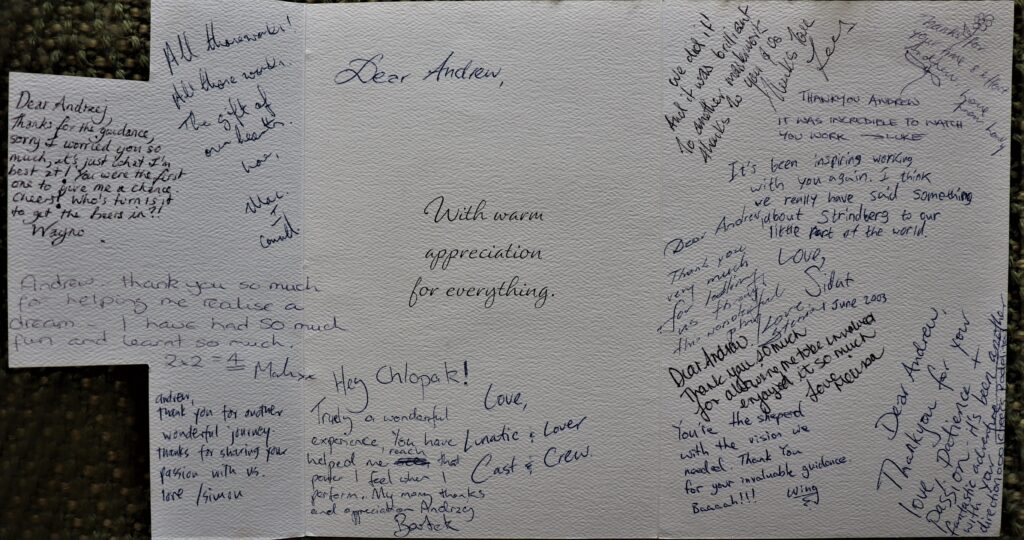 Dear Andrzej,
Thanks for the guidance,
sorry I worried you so
much, it's just what I'm
best at! You were the first
one to give me a chance
Cheers! Who's turn is it
to get the beers in?!
Wayne.
All those works!
All those works.
The gift of
our hearts.
Andrew - thank you so much
for helping me realise a
dream - I have had so much
fun and learnt so much.
2x2 = 4
andrew,
thank you for another
wonderful journey
thanks for sharing your
passion with us.
love /simon
Dear Andrew,
With warm
appreciation
for everything.
Hey Chlopak!
Truely a wonderful
experience. You have
helped me reach that
power I feel when I
perform. My many thanks
and appreciation Andrzej
Bartek
Love,
Lunatic & Lover
Cast & Crew.
We did it!
And it was brilliant
To another masterwork
thanks to you & us
Thanks for
your time & effort
Love from
THANKYOU ANDREW
IT WAS INCREDIBLE TO WATCH
YOU WORK LUKE
It's been inspiring working
with you again. I think
we really have said something
about Strindberg to our
little part of the world
Love,
Sidat
Dear Andrew,
Thank you
very much
for leading
us through
this wonderful
play
Love
June 2003
Dear Andrew.
Thank you so much
for allowing me to be involved
enjoyed it so much
love
You're the
with the vision we
needed. Thank You
for your invaluable guidance.
Baaaah!!! Wing
Dear Andrew,
Thankyou for your
love, patience &
passion. it's been another
fantastic adventure
with your
direction xoxo